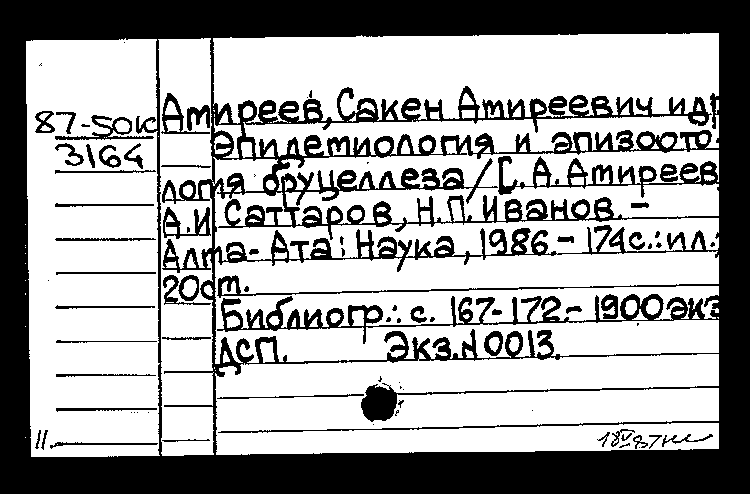 87-50к
3164
Атиреев, Сакен Атиреевич и др
Эпидемиология и эпизоото-
логия бруцеллеза / С.А. Атиреев,
А.И. Саттаров, Н.П. Иванов. –
Алма-Ата: Наука, 1986. – 174с.: ил.;
20ст.
Библиогр.: с. 167-172. – 1900 экз
ДСП. Экз. N 0013.
11.